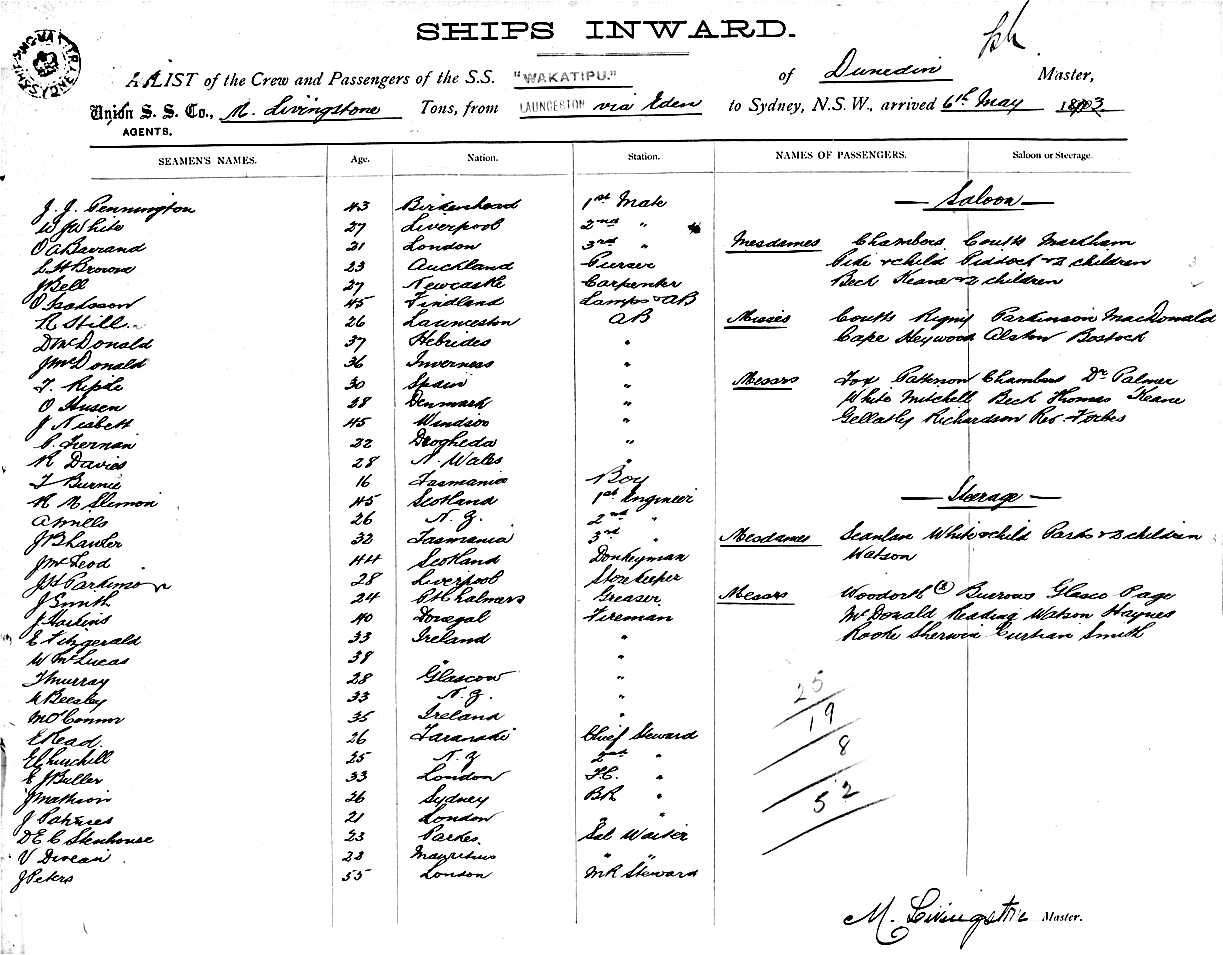 SHIPS INWARD.
A LIST of the Crew and Passengers of the S.S. "WAKATIPU." of Dunedin Master,
Union S. S. Co., M. Livingstone Tons, from LAUNCESTON via Eden to Sydney, N.S.W., arrived 6th May 1903
AGENTS.
SEAMEN'S NAMES. Age. Nation. Station. NAMES OF PASSENGERS. Saloon or Steerage.
J. J. Pennington 43 Birkenhead 1st Mate — Saloon —
W J White 27 Liverpool 2nd "
O A Barrand 21 London 3rd " Mesdames Chambers Coutts Markham
L H Brown 23 Auckland Purser Pike & child Piddock & 2 children
J Bell 27 Newcastle Carpenter Beck Keane & 2 children
O Isaksson 45 Findland Lamps & AB
R Still 26 Launceston AB Misses Coutts Parkinson MacDonald
D McDonald 37 Hebrides " Cape Heywood Alston Bostock
J McDonald 36 Inverness "
30 Spain " Messrs Fox Patterson Chambers Dr Palmer
O Husen 28 Denmark " White Mitchell Beck Thomas Keane
J Nisbett 45 Windsor " Gellatly Richardson Rev. Forbes
P. Tiernan 32 Drogheda "
R Davies 28 N. Wales "
T Burnie 16 Tasmania Boy
R M Slimon 45 Scotland 1st Engineer — Steerage —
A Mills 26 N. Z. 2nd "
J B Lawler 32 Tasmania 3rd " Mesdames Scanlan White & child Park & 2 children
J McLeod 44 Scotland Donkeyman Watson
J H Parkinson 28 Liverpool Storekeeper
J Smith 24 Pt Chalmers Greaser Messrs Woodorth (2) Burrows Glasco Page
J Harkins 40 Donegal Fireman McDonald Reading Watson Haynes
E Fitzgerald 33 Ireland " Rooke Sherwin Curran Smith
W McLucas 38 " "
T Murray 28 Glascow "
Beesley 33 N. Z. "
M O'Connor 35 Ireland "
E Read 26 Taranaki Chief Steward
E Churchill 25 N. Z 2nd "
E J Buller 33 London F.C. "
J Mathison 26 Sydney BR "
J 21 London " "
D E C Stenhouse 23 Parkes Sal Waiter
V Duncan 23 Mauritius " "
J Peters 55 London MR Steward
25
19
8
52
M. Livingstone Master.